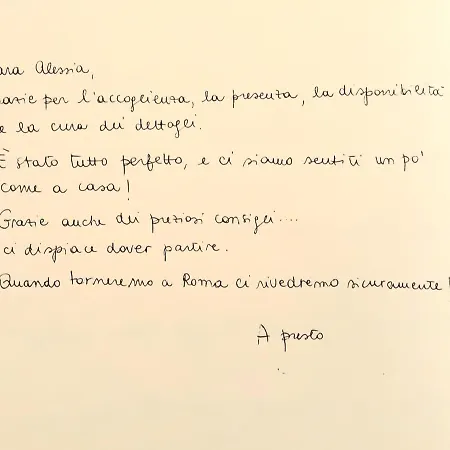 ara Alessia,
razie per l'accoglienza, la presenza, la disponibilità
e la cura dei dettagli.
È stato tutto perfetto, e ci siamo sentiti un po'
come a casa!
Grazie anche dei preziosi consigli...
ci dispiace dover partire.
Quando torneremo a Roma ci rivedremo sicuramente!
A presto